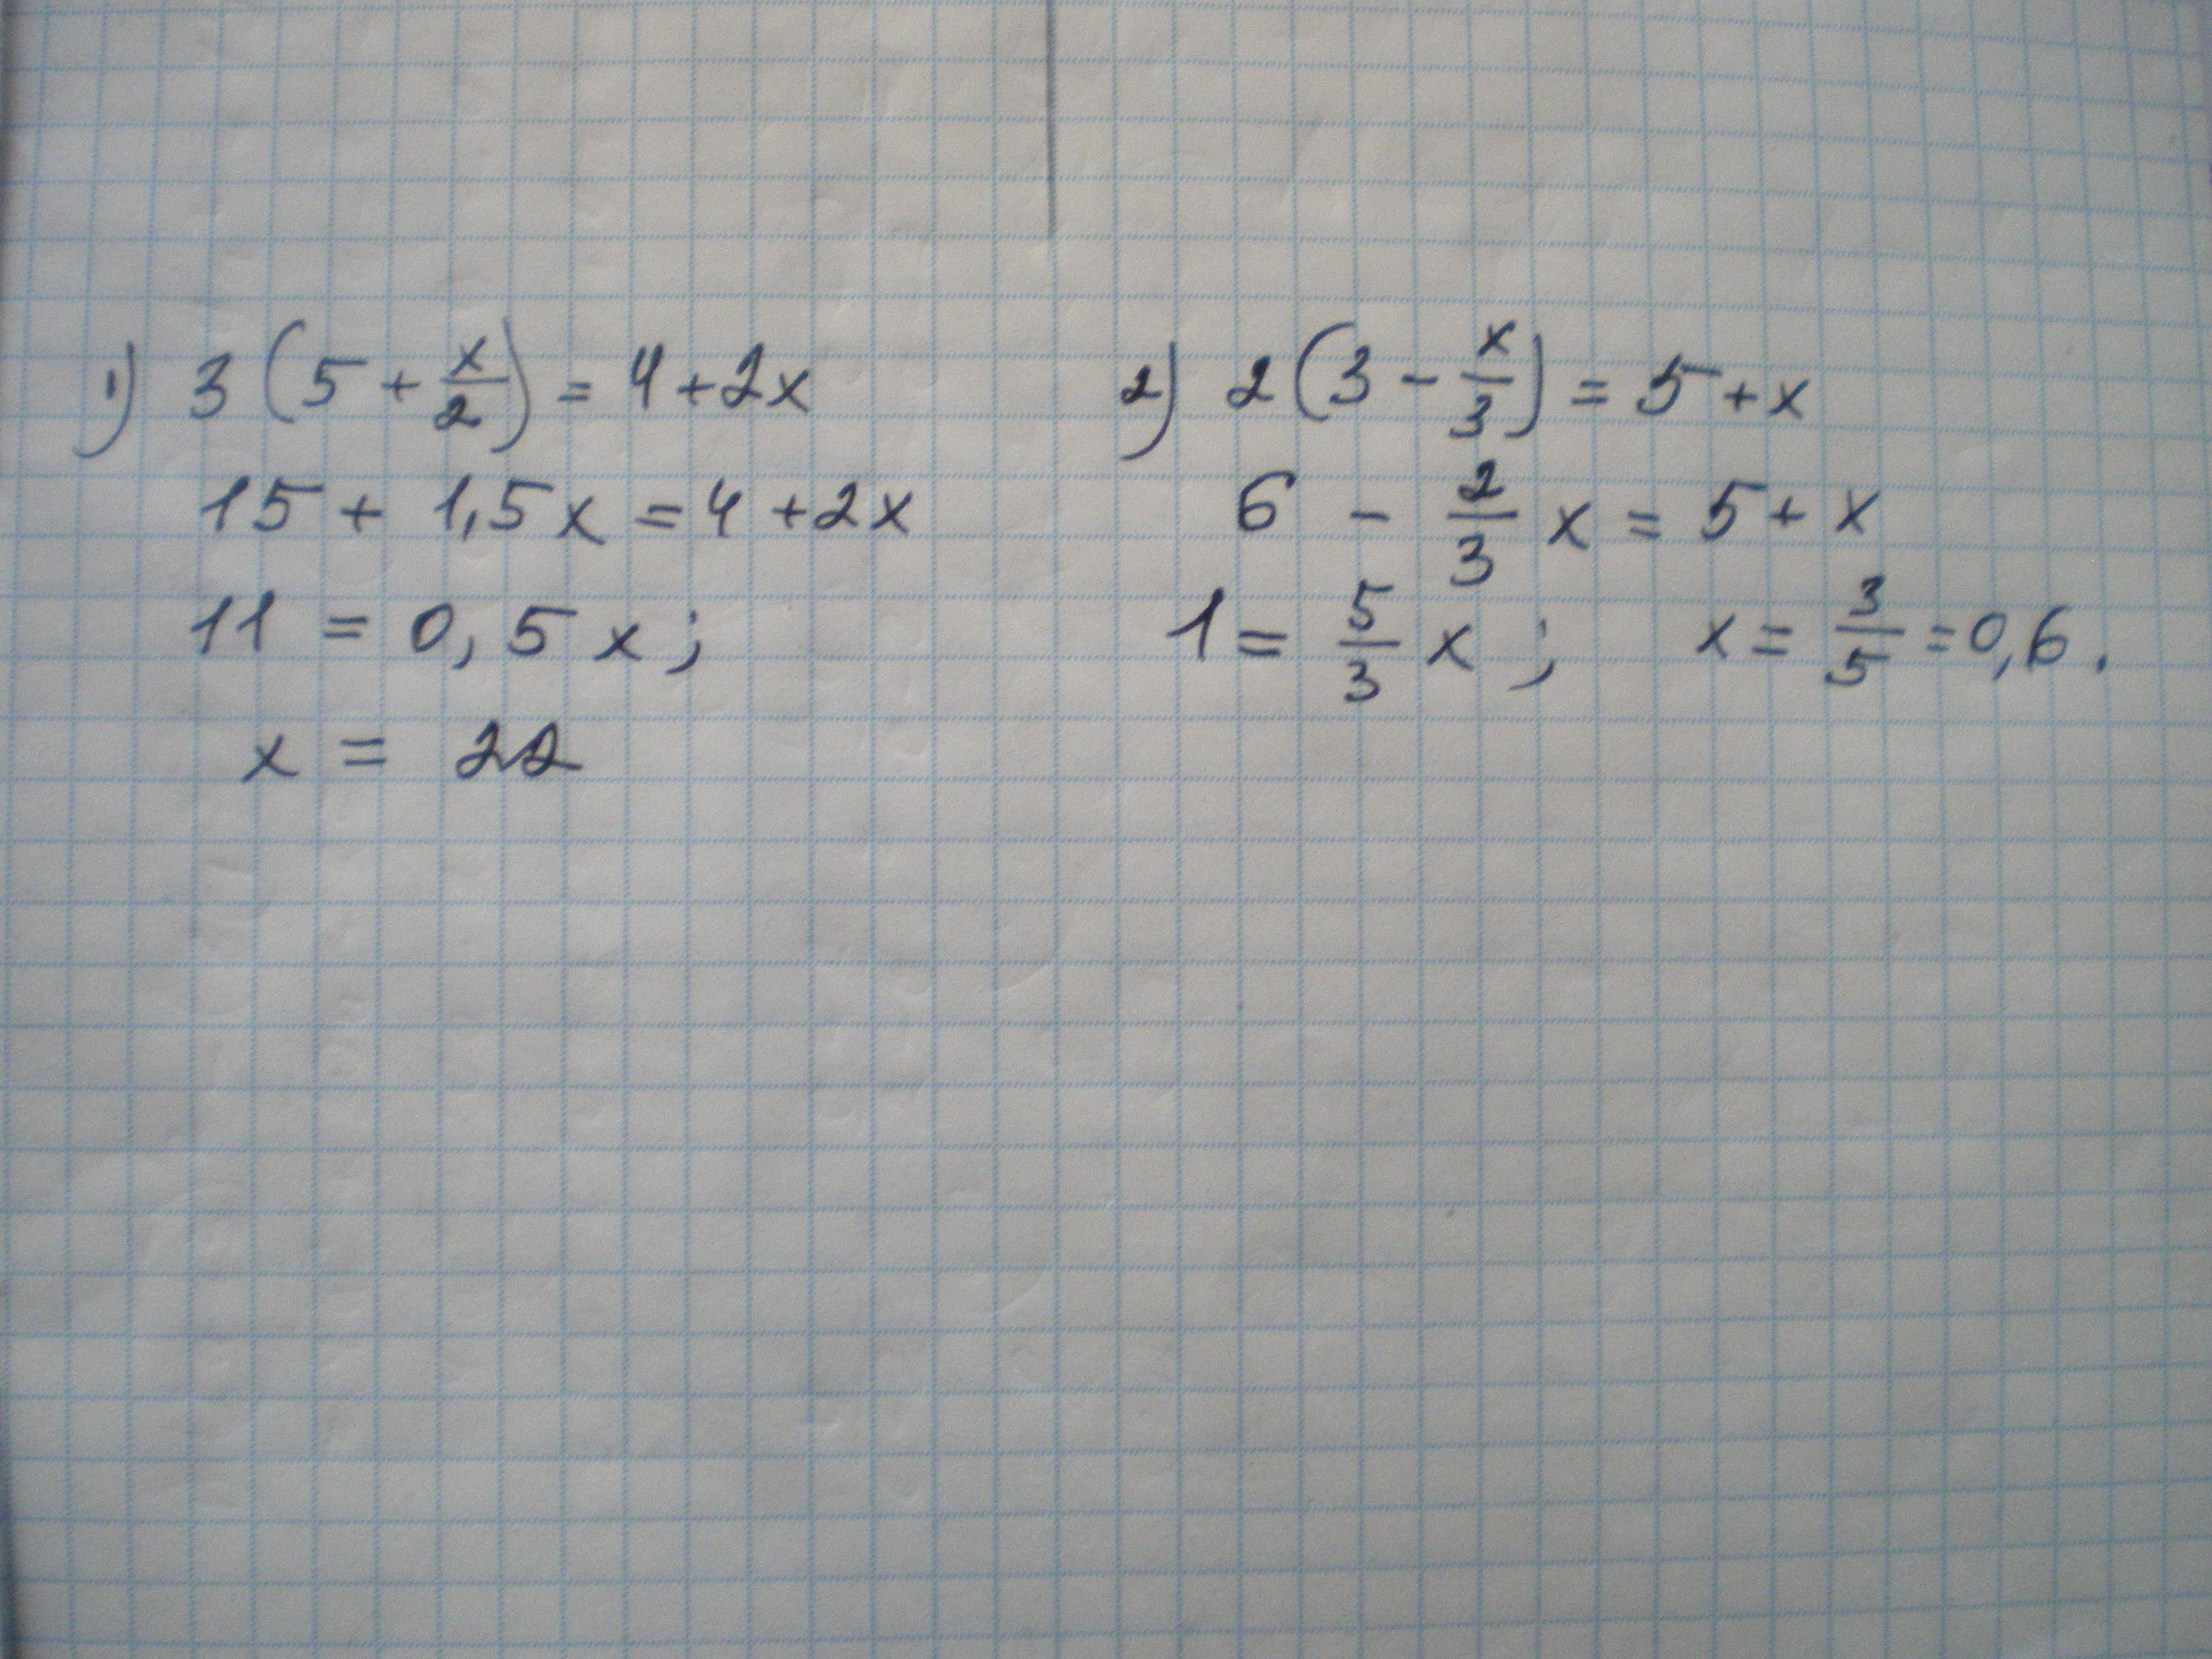 1) 3 (5 + x/2) = 4 + 2x
15 + 1,5x = 4 + 2x
11 = 0,5x;
x = 22
2) 2 (3 - x/3) = 5 + x
6 - 2/3 x = 5 + x
1 = 5/3 x ; x = 3/5 = 0,6.